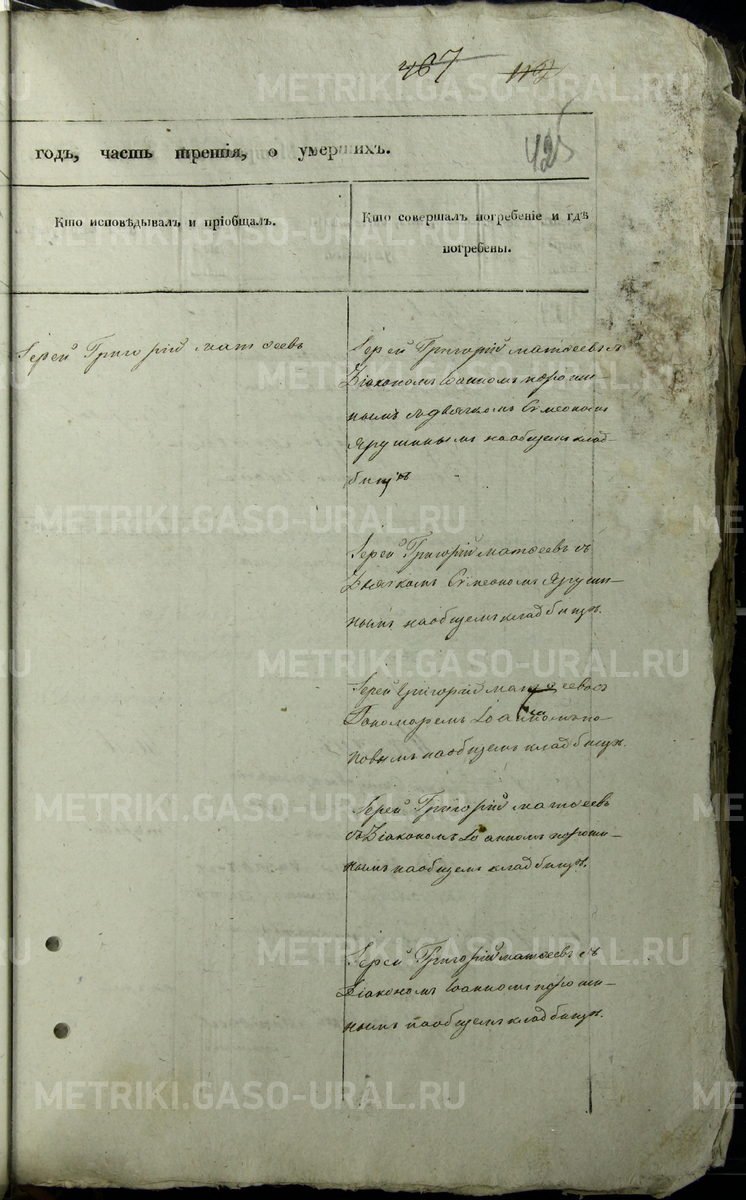 467 112
425
годъ, часть третія, о умершихъ.
Кто исповѣдывалъ и пріобщалъ.
Кто совершалъ погребеніе и гдѣ
погребены.
Іерей Григорій Матѳеевъ
Іерей Григорій Матѳеевъ съ
Діакономъ Іоанномъ Пороши-
нымъ и дьячкомъ Симеономъ
Ярушинымъ на общемъ клад-
бищѣ
Іерей Григорій Матѳеевъ съ
Дьячкомъ Симеономъ Яруши-
нымъ на общемъ кладбищѣ.
Іерей Григорій Матѳеевъ съ
Пономаремъ Іоанномъ По-
повымъ на общемъ кладбищѣ.
Іерей Григорій Матѳеевъ
съ Діакономъ Іоанномъ Пороши-
нымъ на общемъ кладбищѣ.
Іерей Григорій Матѳеевъ съ
Діакономъ Іоанномъ Пороши-
нымъ на общемъ кладбищѣ.
METRIKI.GASO-URAL.RU